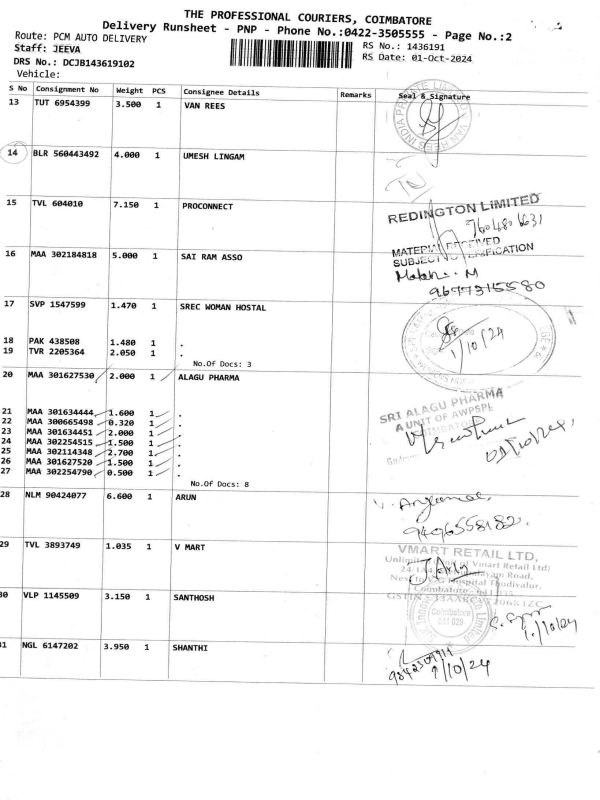 THE PROFESSIONAL COURIERS, COIMBATORE
Delivery Runsheet - PNP - Phone No.:0422-3505555 - Page No.:2
Route: PCM AUTO DELIVERY
RS No.: 1436191
Staff: JEEVA
RS Date: 01-Oct-2024
DRS No.: DCJB143619102
Vehicle:
S No Consignment No Weight PCS Consignee Details Remarks Seal & Signature
13 TUT 6954399 3.500 1 VAN REES
14 BLR 560443492 4.000 1 UMESH LINGAM
15 TVL 604010 7.150 1 PROCONNECT
REDINGTON LIMITED
MATERIAL RECEIVED
SUBJECT VERIFICATION
16 MAA 302184818 5.000 1 SAI RAM ASSO
9677315580
17 SVP 1547599 1.470 1 SREC WOMAN HOSTAL
1/10/24
18 PAK 438508 1.480 1 .
19 TVR 2205364 2.050 1 .
No.Of Docs: 3
20 MAA 301627530 2.000 1 ALAGU PHARMA
SRI ALAGU PHARMA
A UNIT OF AWPSPL
21 MAA 301634444 1.600 1 .
22 MAA 300665498 0.320 1 .
23 MAA 301634451 2.000 1 .
24 MAA 302254515 1.500 1 .
25 MAA 302114348 2.700 1 .
26 MAA 301627520 1.500 1 .
27 MAA 302254790 0.500 1 .
No.Of Docs: 8
28 NLM 90424077 6.600 1 ARUN
9496558182
29 TVL 3893749 1.035 1 V MART
VMART RETAIL LTD,
30 VLP 1145509 3.150 1 SANTHOSH
Coimbatore
641 029
1/10/24
31 NGL 6147202 3.950 1 SHANTHI
1/10/24